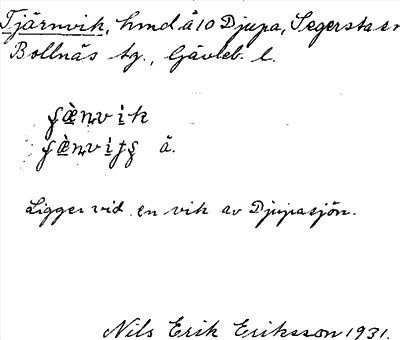 Tjärnvik, hmd å 10 Djupa, Segersta sn
Bollnäs tg., Gävleb. l.
Ligger vid en vik av Djupasjön.
Nils Erik Eriksson 1931.